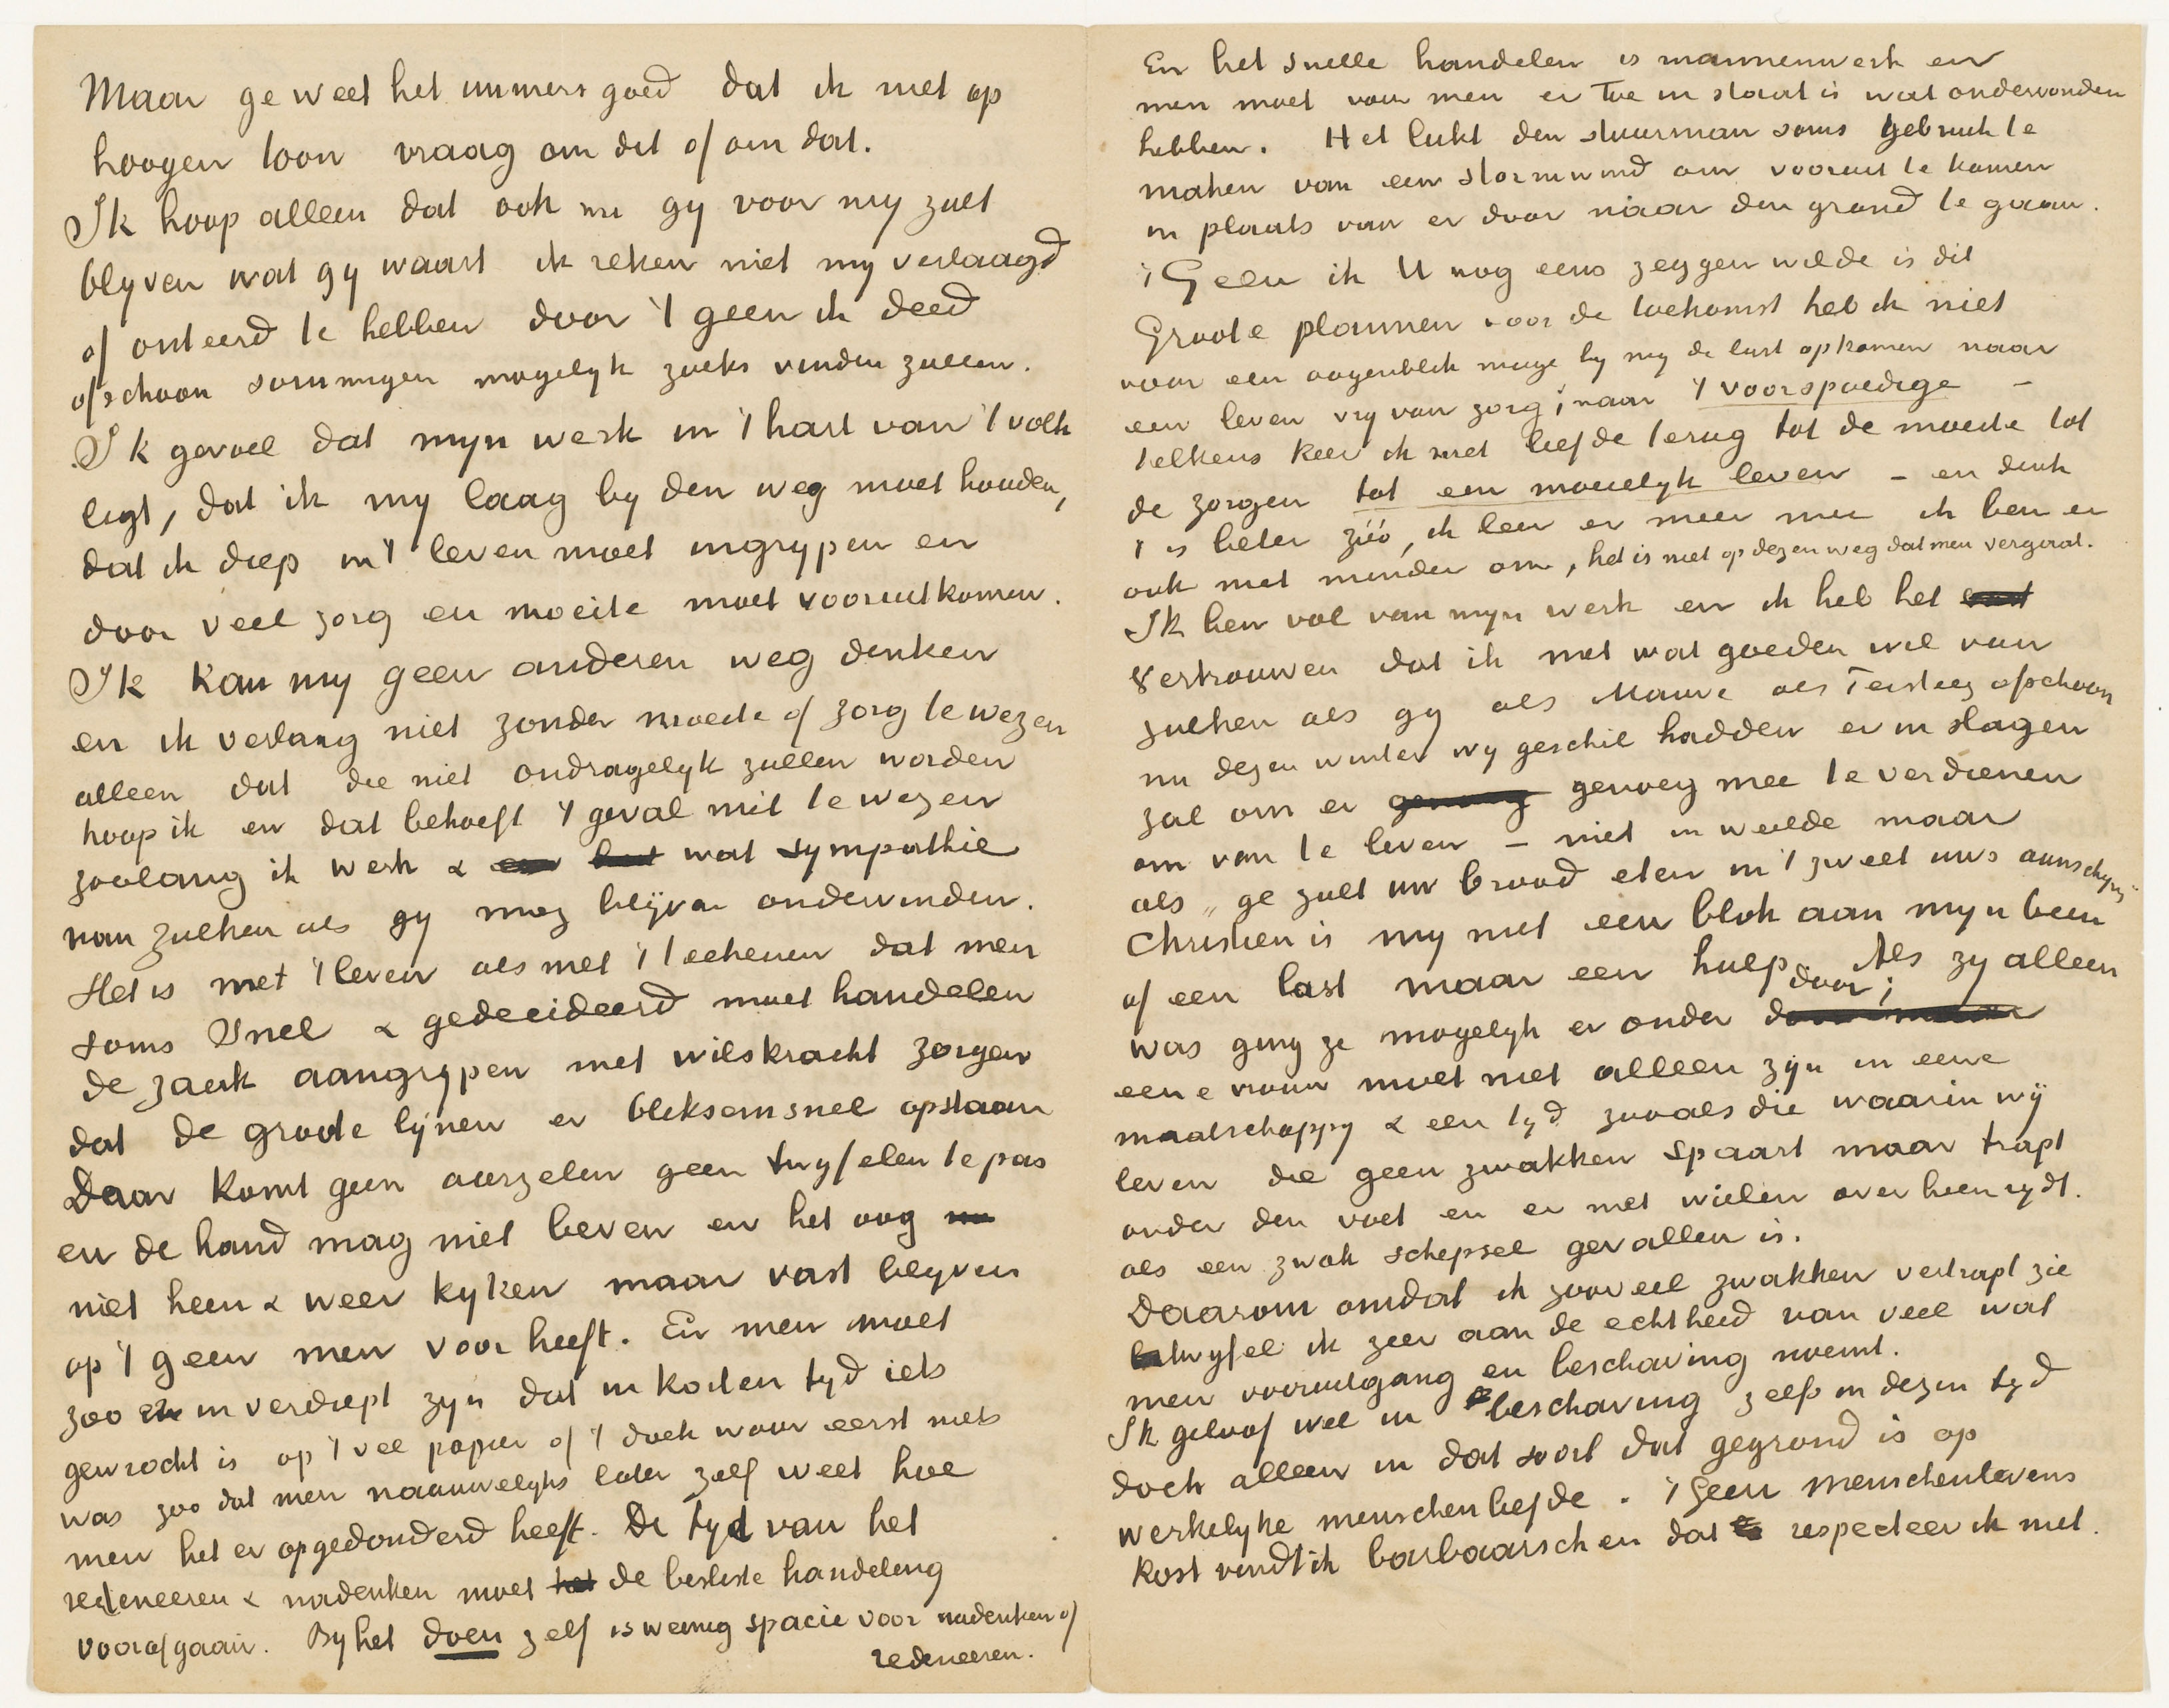 Maar ge weet het immers goed dat ik niet op
hoogen toon vraag om dit of om dat.
Ik hoop alleen dat ook nu gy voor my zult
blyven wat gy waart ik reken niet my verlaagd
of onteerd te hebben door 't geen ik deed
ofschoon sommigen mogelyk zoiets vinden zullen.
Ik gevoel dat myn werk in 't hart van 't volk
ligt, dat ik my laag by den weg moet houden,
dat ik diep in 't leven moet ingrypen en
door veel zorg en moeite moet vooruitkomen.
Ik kan my geen anderen weg denken
en ik verlang niet zonder moeite of zorg te wezen
alleen dat die niet ondragelyk zullen worden
hoop ik en dat behoeft 't geval niet te wezen
zoolang ik werk & wat sympathie
van zulken als gy mag blijven ondervinden.
Het is met 't leven als met 't teekenen dat men
soms snel & gedecideerd moet handelen
de zaak aangrypen met wilskracht zorgen
dat de groote lijnen er bliksemsnel opstaan
Daar komt geen aarzelen geen twyfelen te pas
en de hand mag niet beven en het oog
niet heen & weer kyken maar vast blyven
op 't geen men voor heeft. En men moet
zoo er in verdiept zyn dat in korten tyd iets
gewrocht is op 't vel papier of 't doek waar eerst niets
was zoo dat men naauwelyks later zelf weet hoe
men het er opgedonderd heeft. De tyd van het
redeneeren & nadenken moet de besliste handeling
voorafgaan. By het doen zelf is weinig spacie voor nadenken of
redeneeren.
En het snelle handelen is mannenwerk en
men moet voor men er toe in staat is wat ondervonden
hebben. Het lukt den stuurman soms gebruik te
maken van een stormwind om vooruit te komen
in plaats van er door naar den grond te gaan.
't Geen ik U nog eens zeggen wilde is dit
Groote plannen voor de toekomst heb ik niet
voor een oogenblik moge by my de lust opkomen naar
een leven vry van zorg, naar 't voorspoedige –
telkens keer ik met liefde terug tot de moeite tot
de zorgen tot een moeielyk leven – en denk
't is beter zóó, ik leer er meer mee ik ben er
ook niet minder om, het is niet op dezen weg dat men vergaat.
Ik ben vol van myn werk en ik heb het
vertrouwen dat ik met wat goeden wil van
zulken als gy als Mauve als Tersteeg ofschoon
nu dezen winter wy geschil hadden er in slagen
zal om er genoeg mee te verdienen
om van te leven – niet in weelde maar
als „ge zult uw brood eten in 't zweet uws aanschyns"
Christien is my niet een blok aan myn been
of een last maar een hulp. Als zy alleen
was ging ze mogelyk er onder door;
eene vrouw moet niet alleen zijn in eene
maatschappy & een tyd zooals die waarin wij
leven die geen zwakken spaart maar trapt
onder den voet en er met wielen over heen rydt.
als een zwak schepsel gevallen is.
Daarom omdat ik zooveel zwakken vertrapt zie
twyfel ik zeer aan de echtheid van veel wat
men vooruitgang en beschaving noemt.
Ik geloof wel in beschaving zelfs in dezen tyd
doch alleen in dat soort dat gegrond is op
werkelyke menschenliefde. 't Geen menschenlevens
kost vindt ik barbaarsch en dat respecteer ik niet.